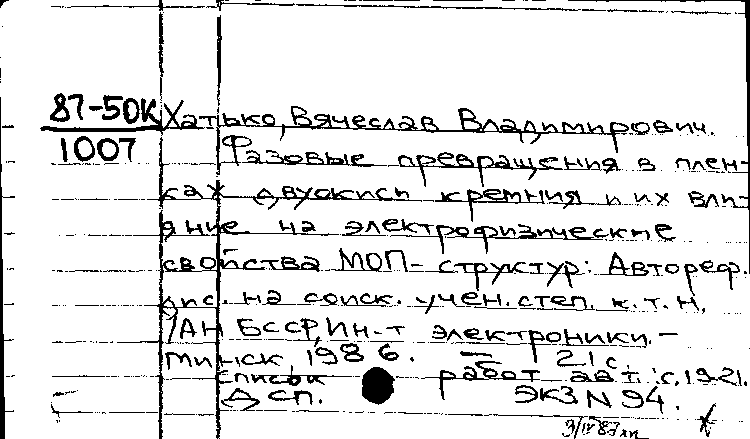 87-50К
1007
Хатько, Вячеслав Владимирович.
Фазовые превращения в плен-
ках двуокиси кремния и их вли-
яние на электрофизические
свойства МОП-структур: Автореф.
дис. на соиск. учен. степ. к.т.н.
/АН БССР, Ин-т электроники. —
Минск, 1986. — 21 с.
список работ авт.: с. 19-21.
ДСП. ЭКЗ N 94.
3/IV 87